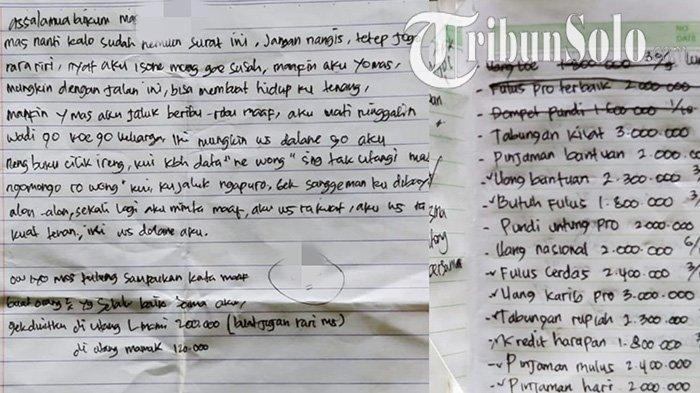 TribunSolo.com
NO
DATE
Assalamualaikum mas
mas nanti kalo sudah nemuin surat ini, jangan nangis, tetep jogo
rara riri, nyat aku isone mong gae susah, mangin aku yo mas,
mungkin dengan jalan ini, bisa membuat hidup ku tenang,
mangin y mas aku jaluk beribu-ribu maaf, aku mati ninggalin
wadi go koe go keluarga. Iki mungkin ws dalane go aku
neng buku cilik ireng, kui kbh data "ne wong" sng tak utangi mas
ngomongo ro wong" kui, ku jaluk ngapuro, gek sanggeman ku dibayar
alon-alon, sekali lagi aku minta maaf, aku ws ra kuat, aku ws ra
kuat tenan, iki ws dalane aku.
oo iyo mas tulung sampaikan kata maaf
buat orang2 yg selalu baik sama aku,
gek duitku di utang 200.000 (buat jajan rari ms)
di utang mamak 120.000
- Fulus Pro terbaik 2.000.000
- Dompet Pundi 1.600.000
- Tabungan kilat 3.000.000
- Pinjaman bantuan 2.000.000
- Uang bantuan 2.300.000
- Butuh Fulus 1.800.000
- Pundi untung pro 2.000.000
- Uang nasional 2.000.000
- Fulus Cerdas 2.400.000
- Uang karib pro 3.000.000
- Tabungan rupiah 2.300.000
- Kredit harapan 1.800.000
- Pinjaman mulus 2.400.000
- Pinjaman hari 2.000.000